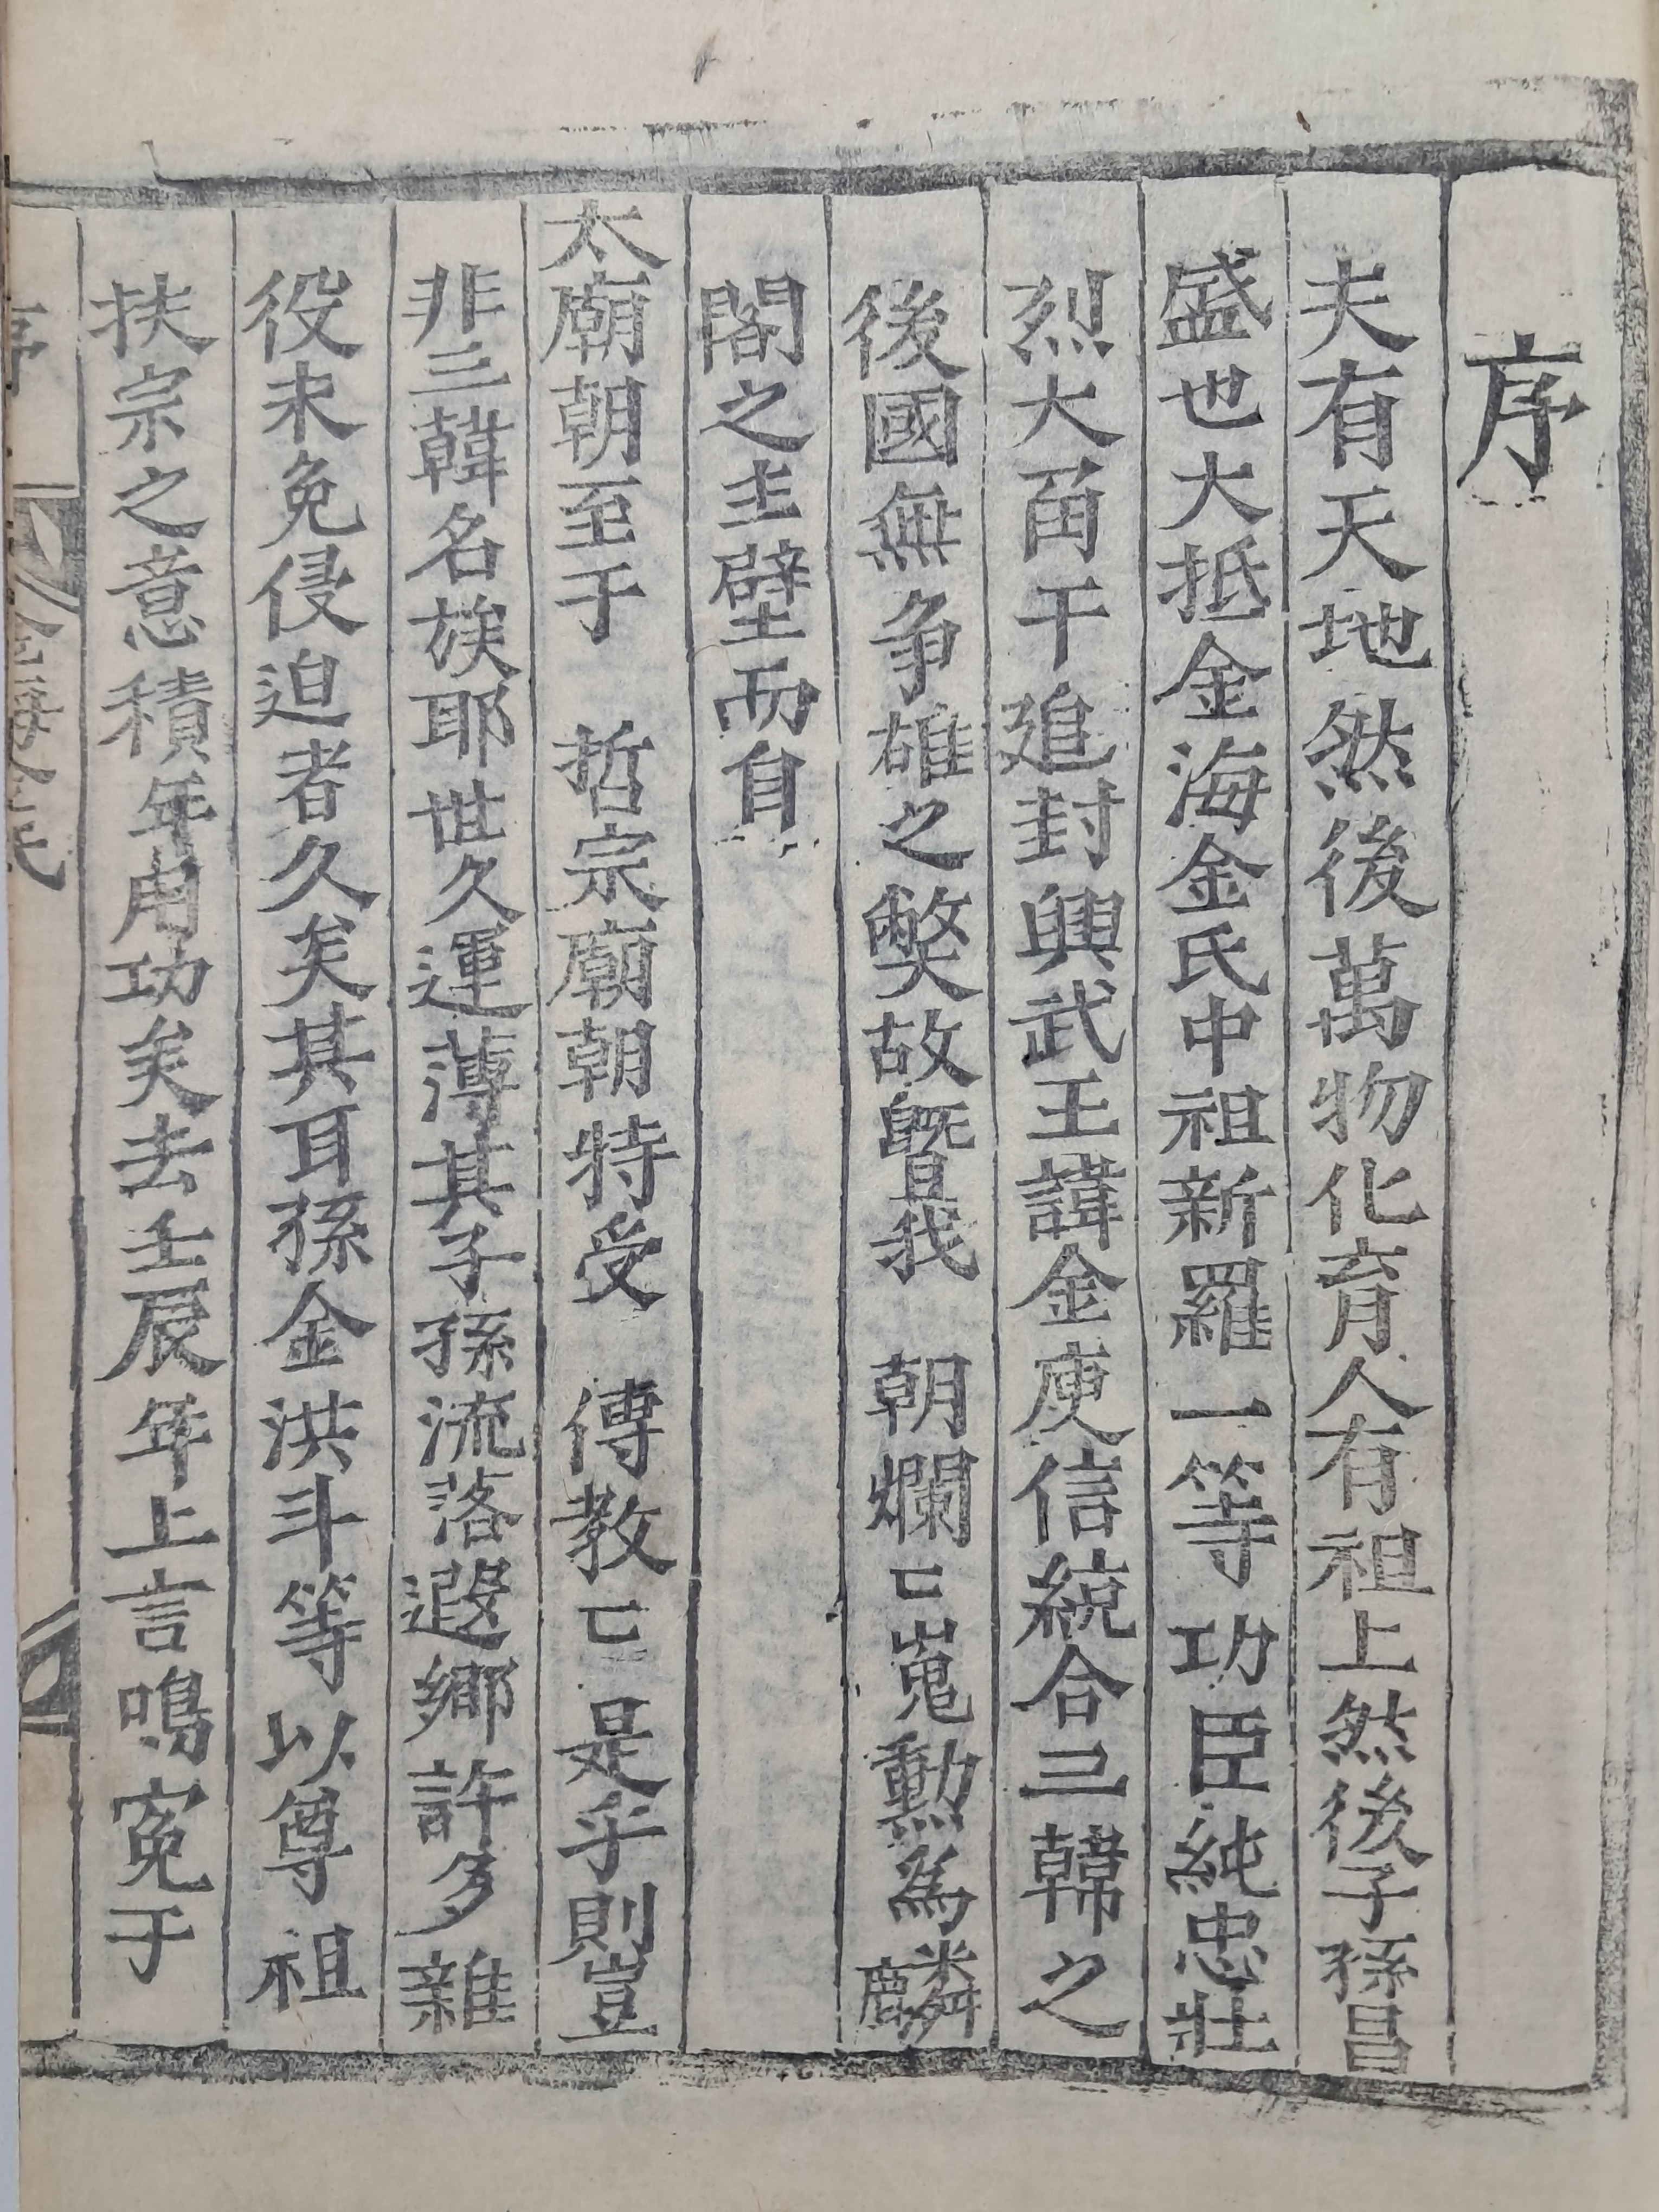 序
夫有天地然後萬物化育人有祖上然後子孫昌
盛也大抵金海金氏中祖新羅一等功臣純忠壯
烈大角干追封興武王諱金庾信統合三韓之
後國無爭雄之弊故曁我　朝爛〻嵬勳爲麟
閣之圭壁而自
太廟朝至于　哲宗廟朝特受　傳敎〻是乎則豈
非三韓名族耶世久運薄其子孫流落遐鄕許多雜
役未免侵迫者久矣其耳孫金洪斗等以尊祖
扶宗之意積年用功矣去壬辰年上言鳴寃于
序
金海金氏